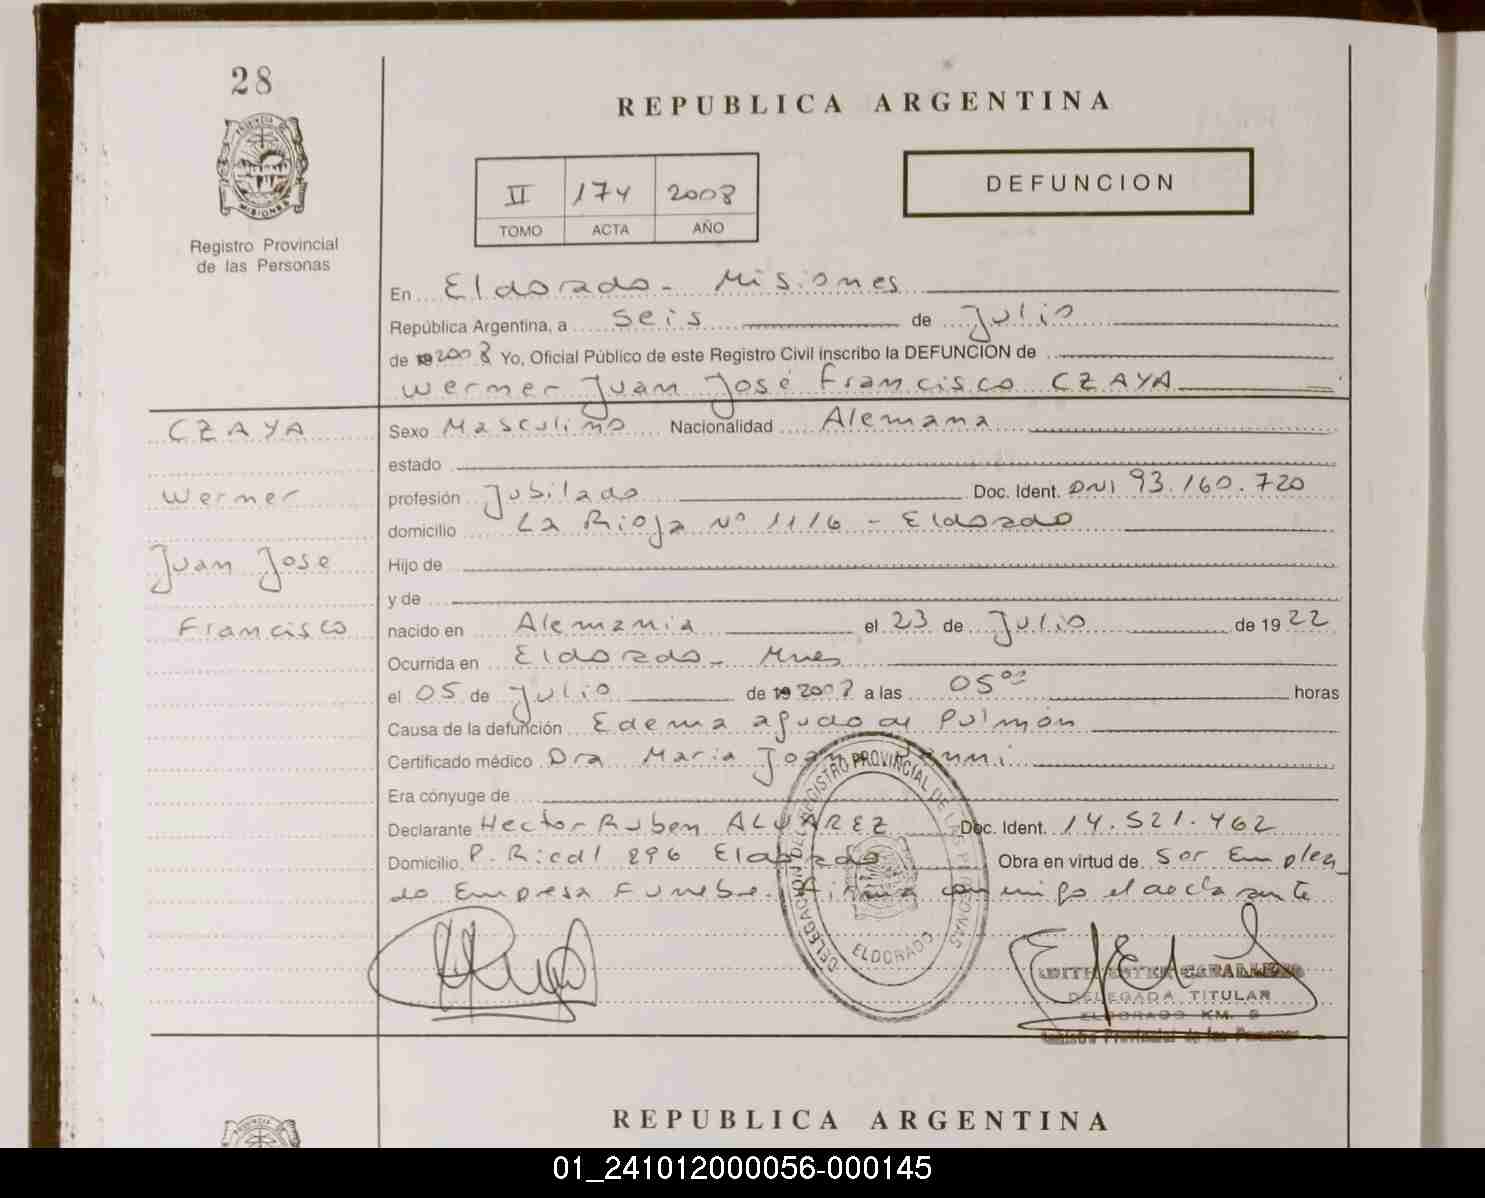 28
REPUBLICA ARGENTINA
PROVINCIA
MISIONES
Registro Provincial
de las Personas
II 174 2008
TOMO ACTA AÑO
DEFUNCION
En Eldorado - Misiones
República Argentina, a seis de Julio
de 2008 Yo, Oficial Público de este Registro Civil inscribo la DEFUNCION de
Werner Juan José Francisco CZAYA
CZAYA
Werner
Juan Jose
Francisco
Sexo Masculino Nacionalidad Alemana
estado
profesión Jubilado Doc. Ident. DNI 93.160.720
domicilio La Rioja Nº 1116 - Eldorado
Hijo de
y de
nacido en Alemania el 23 de Julio de 1922
Ocurrida en Eldorado - Mnes
el 05 de Julio de 19 a las 05⁰⁰ horas
Causa de la defunción Edema agudo de Pulmón
Certificado médico Dra Maria
Era cónyuge de
Declarante Hector Ruben ALVAREZ Doc. Ident. 14.521.462
Domicilio P. Riedl 896 Eldorado Obra en virtud de ser Emplea
do Empresa Funebre. Firma conmigo el declarante
DELEGACION DEL REGISTRO PROVINCIAL DE LAS PERSONAS
ELDORADO
EDITH ESTER CABALLERO
DELEGADA TITULAR
ELDORADO KM. 9
Registro Provincial de las Personas
REPUBLICA ARGENTINA
01_241012000056-000145